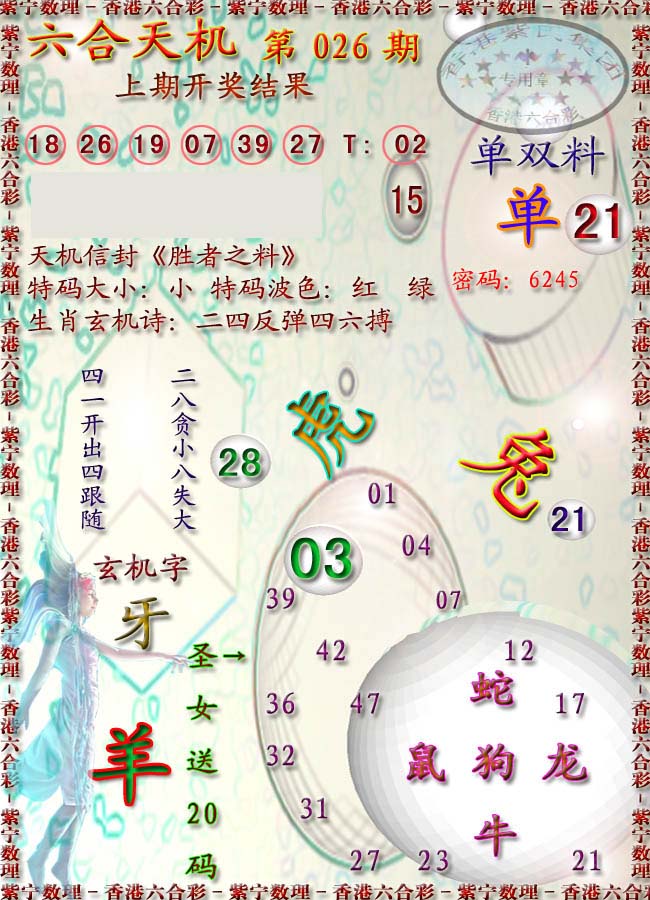 紫宁数理－香港六合彩－紫宁数理－香港六合彩－紫宁数理－香港六合彩
六合天机 第 026 期
上期开奖结果
18 26 19 07 39 27 T: 02
15
专用章
香港六合彩
单双料
单 21
密码: 6245
天机信封《胜者之料》
特码大小: 小 特码波色: 红 绿
生肖玄机诗: 二四反弹四六搏
二八贪小八失大
四一开出四跟随
28
虎
兔
21
玄机字
牙
羊
圣→
女
送
20
码
01
03
04
39
07
42
12
36
47
17
32
31
27
23
21
蛇
鼠 狗 龙
牛
紫宁数理－香港六合彩－紫宁数理－香港六合彩－紫宁数理－香港六合彩